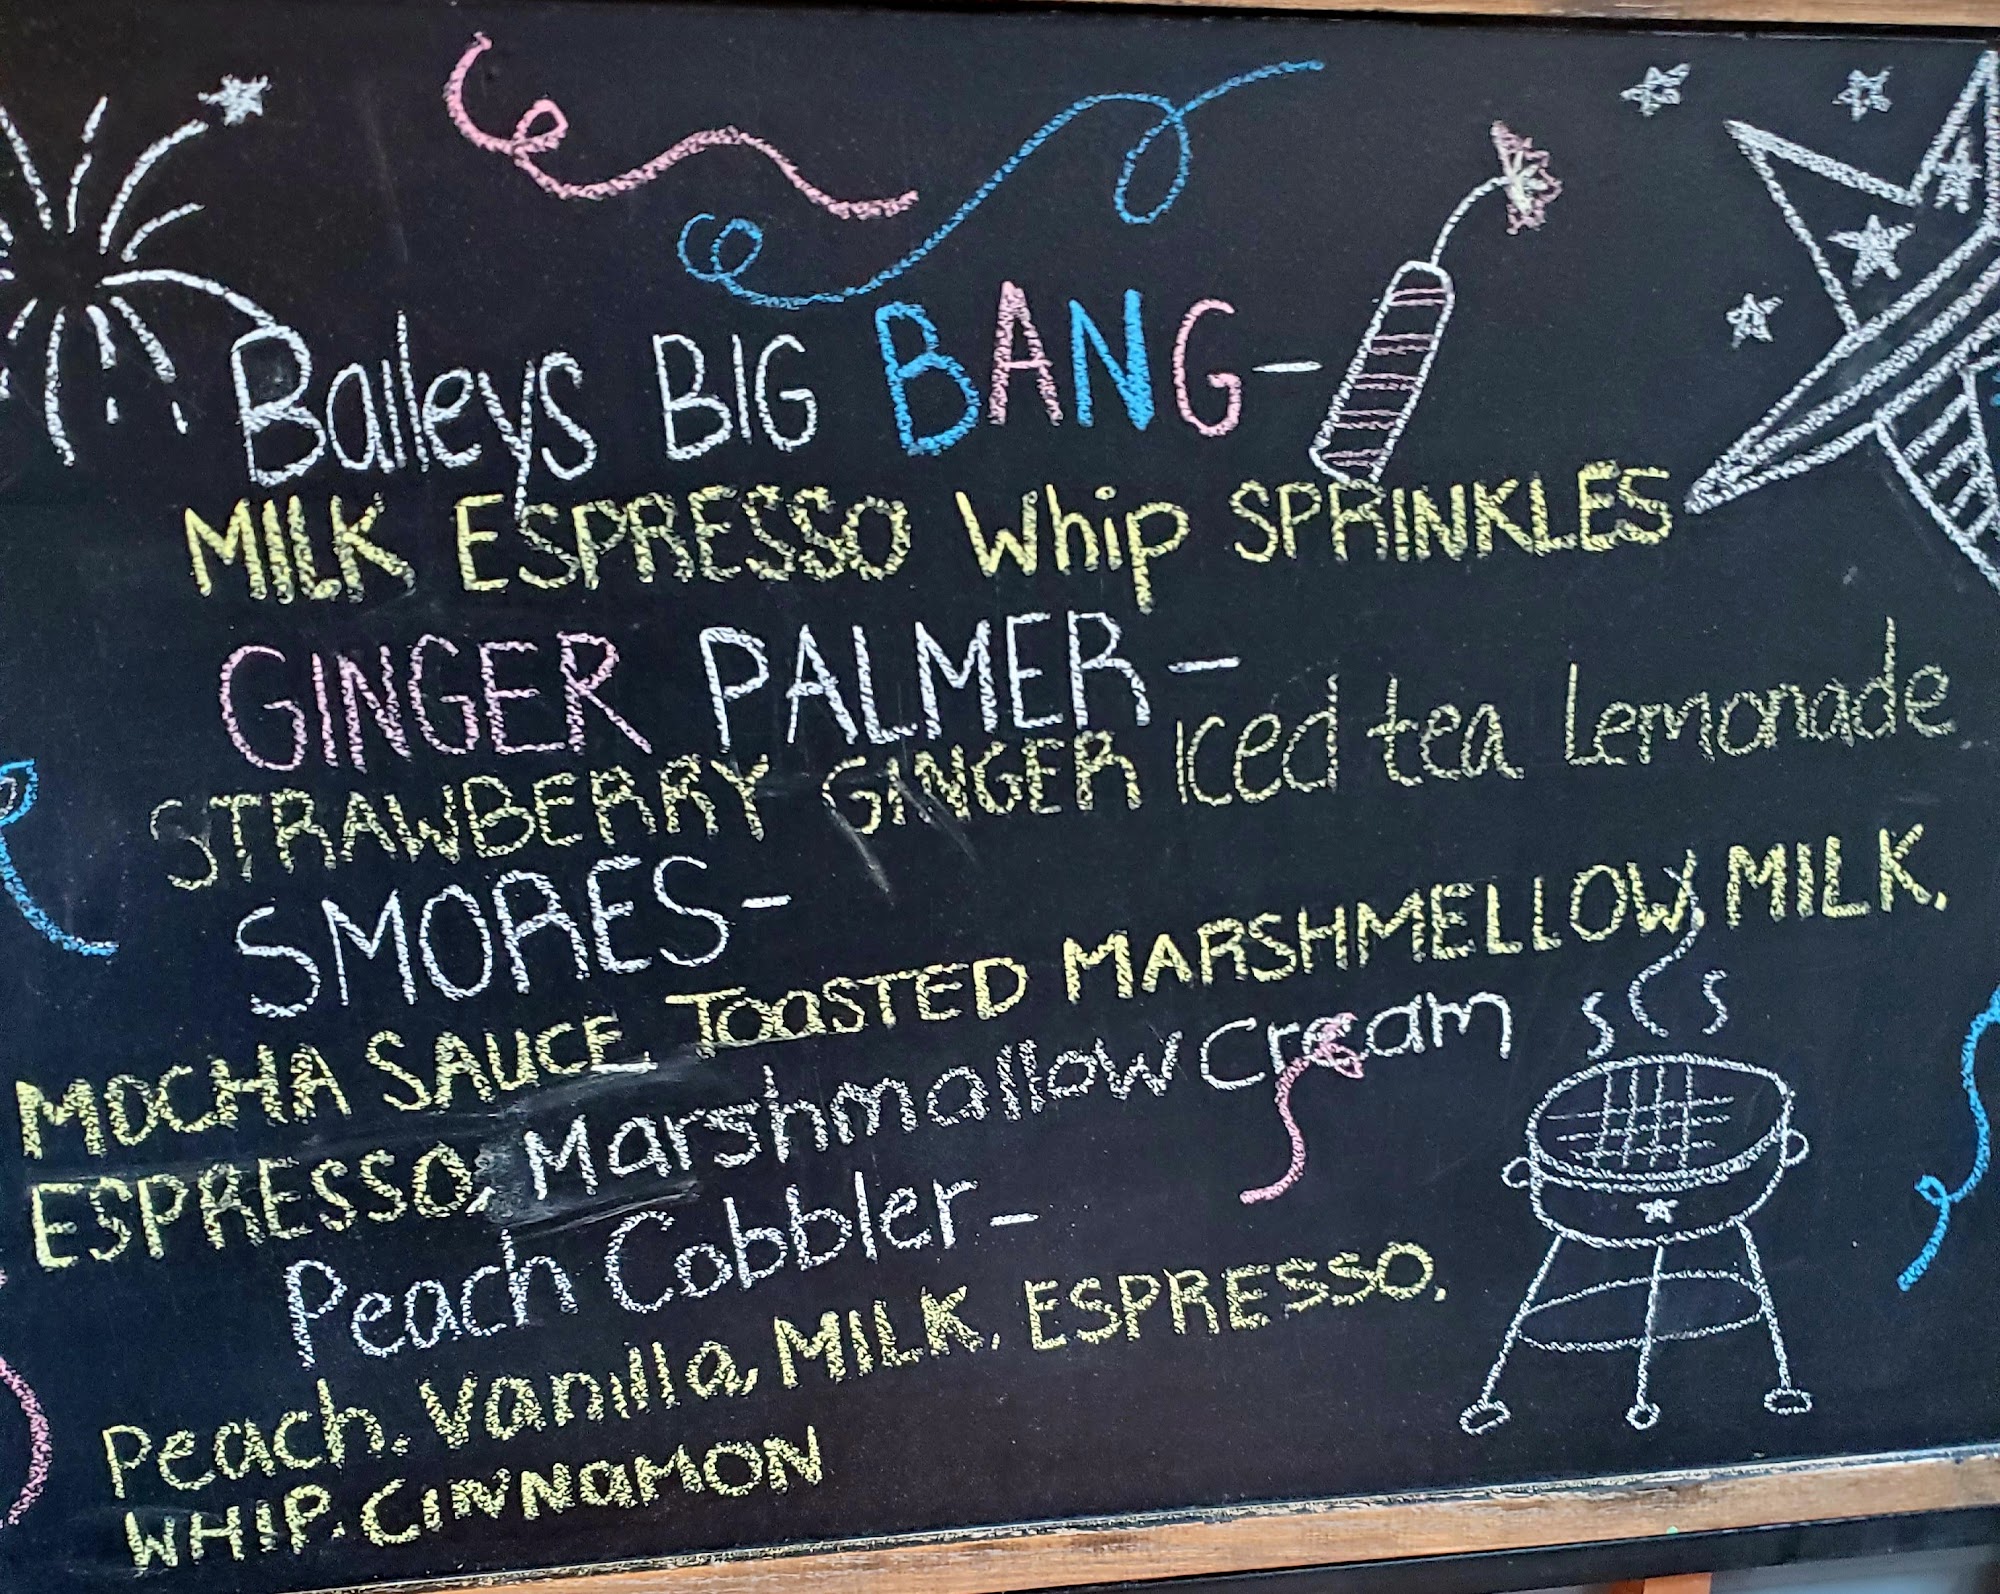 Baileys BIG BANG-
MILK ESPRESSO Whip SPRINKLES
GINGER PALMER-
STRAWBERRY GINGER Iced tea Lemonade
SMORES-
MOCHA SAUCE, TOASTED MARSHMELLOW, MILK,
ESPRESSO, Marshmallow Cream
Peach Cobbler-
Peach, Vanilla, MILK, ESPRESSO,
WHIP, CINNAMON